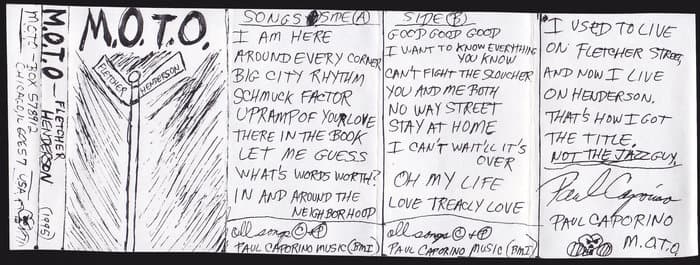 MOTO - BOX 578912
CHICAGO, IL 60657 USA
M.O.T.O - FLETCHER
HENDERSON (1995)
M.O.T.O.
FLETCHER
HENDERSON
SONGS SIDE (A)
I AM HERE
AROUND EVERY CORNER
BIG CITY RHYTHM
SCHMUCK FACTOR
UPRAMP OF YOUR LOVE
THERE IN THE BOOK
LET ME GUESS
WHAT'S WORDS WORTH?
IN AND AROUND THE
NEIGHBORHOOD
all songs © + ℗
PAUL CAPORINO MUSIC (BMI)
SIDE (B)
GOOD GOOD GOOD
I WANT TO KNOW EVERYTHING
YOU KNOW
CAN'T FIGHT THE SLOUCHER
YOU AND ME BOTH
NO WAY STREET
STAY AT HOME
I CAN'T WAIT'LL IT'S
OVER
OH MY LIFE
LOVE TREACLY LOVE
all songs © + ℗
PAUL CAPORINO MUSIC (BMI)
I USED TO LIVE
ON FLETCHER STREET,
AND NOW I LIVE
ON HENDERSON.
THAT'S HOW I GOT
THE TITLE.
NOT THE JAZZ GUY.
Paul Caporino
PAUL CAPORINO
M.O.T.O.